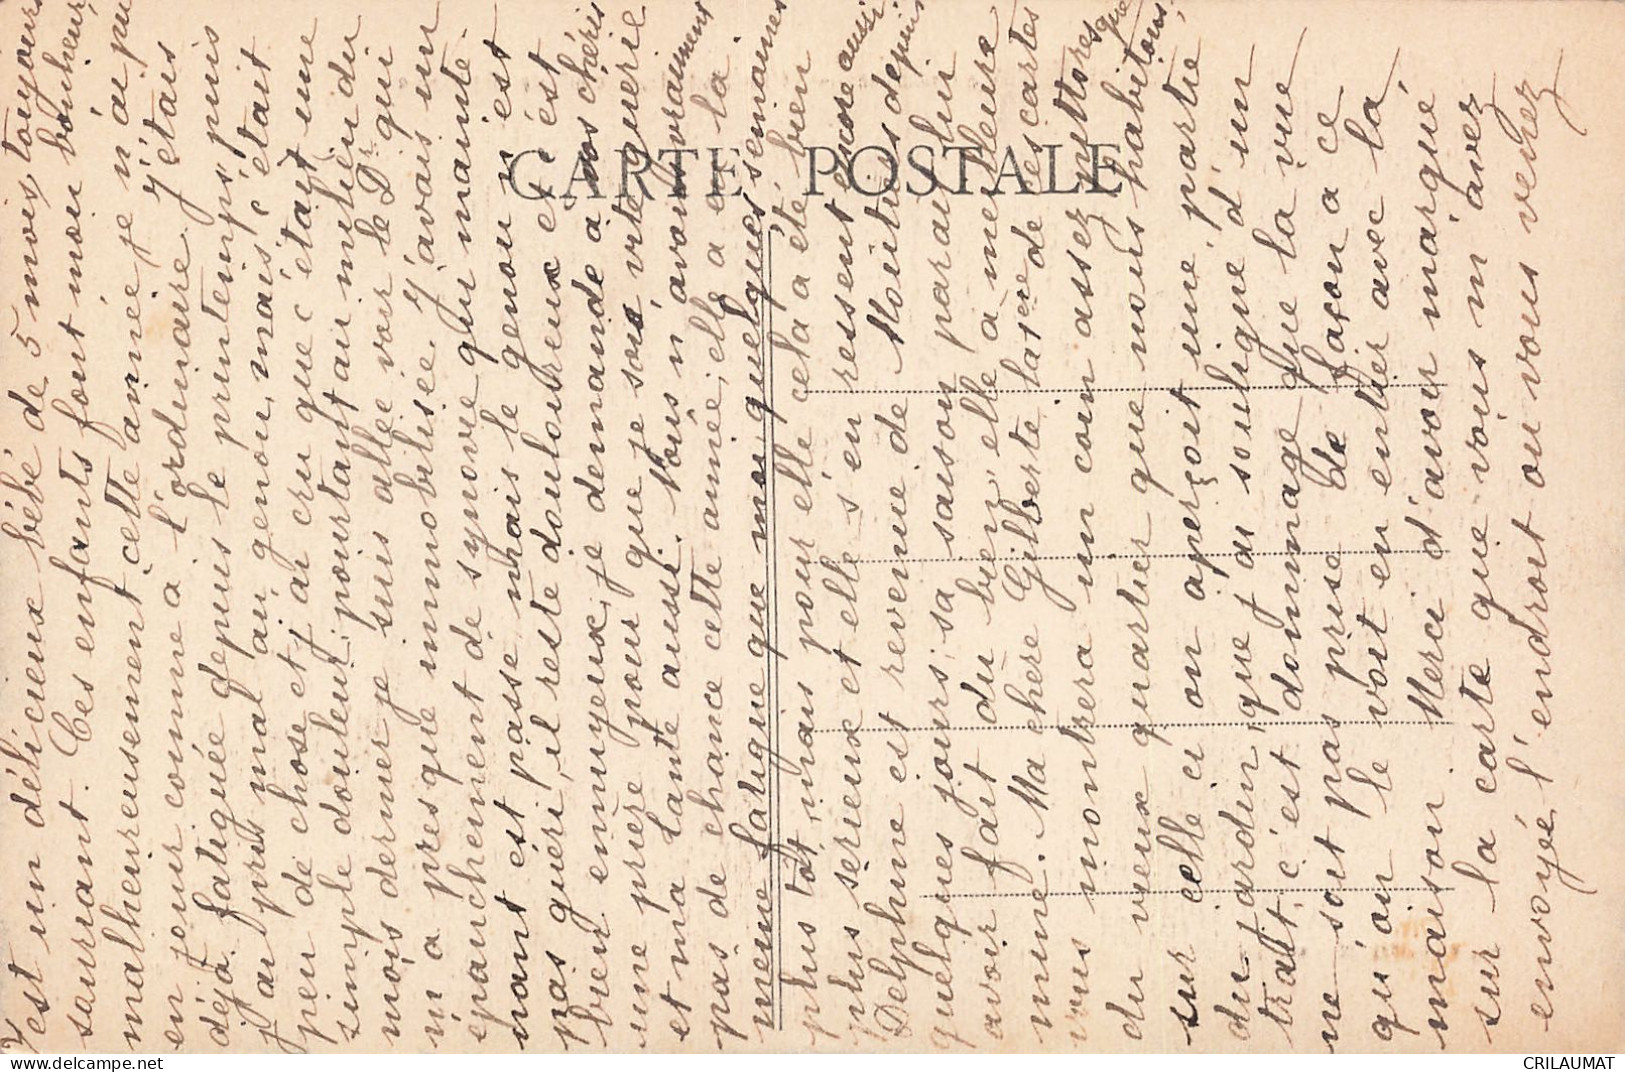 CARTE POSTALE
est un délicieux bébé de 5 mois, toujours
souriant. Ces enfants font mon bonheur,
malheureusement cette année je n'ai pu
en jouir comme à l'ordinaire. J'étais
déjà fatiguée depuis le printemps, puis
j'ai pris mal au genou, mais c'était
peu de chose et j'ai cru que c'était une
simple douleur, pourtant au milieu du
mois dernier je suis allée voir le Dr qui
m'a presque immobilisée. J'avais un
épanchement de synovie qui mainte-
nant est passé mais le genou n'est
pas guéri, il reste douloureux et c'est
bien ennuyeux, je demande à vos chéris
une prière pour que je sois vite guérie
et ma tante aussi. Nous n'avons vraiment
pas de chance cette année, elle a eu la
même fatigue que moi quelques semaines
plus tôt, mais pour elle cela a été bien
plus sérieux et elle s'en ressent encore aussi.
Delphine est revenue de Moûtiers depuis
quelques jours, sa saison parait lui
avoir fait du bien, elle a meilleure
mine. Ma chère Gilberte la 1ère de ces cartes
vous montrera un coin assez pittores que
du vieux quartier que nous habitons,
sur celle ci on aperçoit une partie
du jardin, que j'ai souligné d'un
trait, c'est dommage que la vue
ne soit pas prise de façon à ce
qu'on le voit en entier avec la
maison. Merci d'avoir marqué
sur la carte que vous m'avez
envoyée l'endroit où vous venez
CRILAUMAT